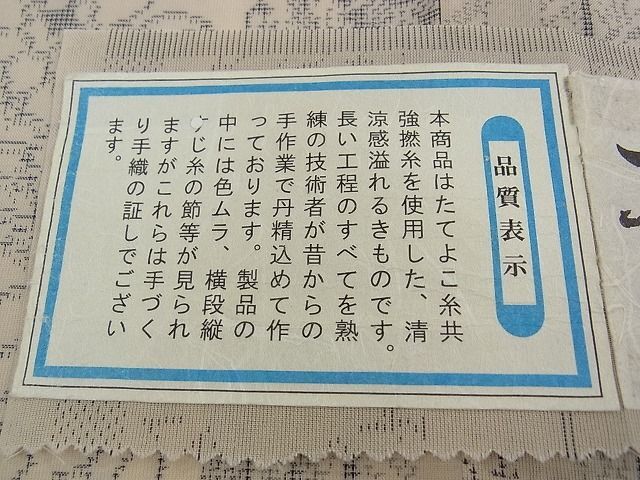 品質表示
本商品はたてよこ糸共
強撚糸を使用した、清
涼感溢れるきものです。
長い工程のすべてを熟
練の技術者が昔からの
手作業で丹精込めて作
っております。製品の
中には色ムラ、横段縦
じ糸の節等が見られ
ますがこれらは手づく
り手織の証しでござい
ます。